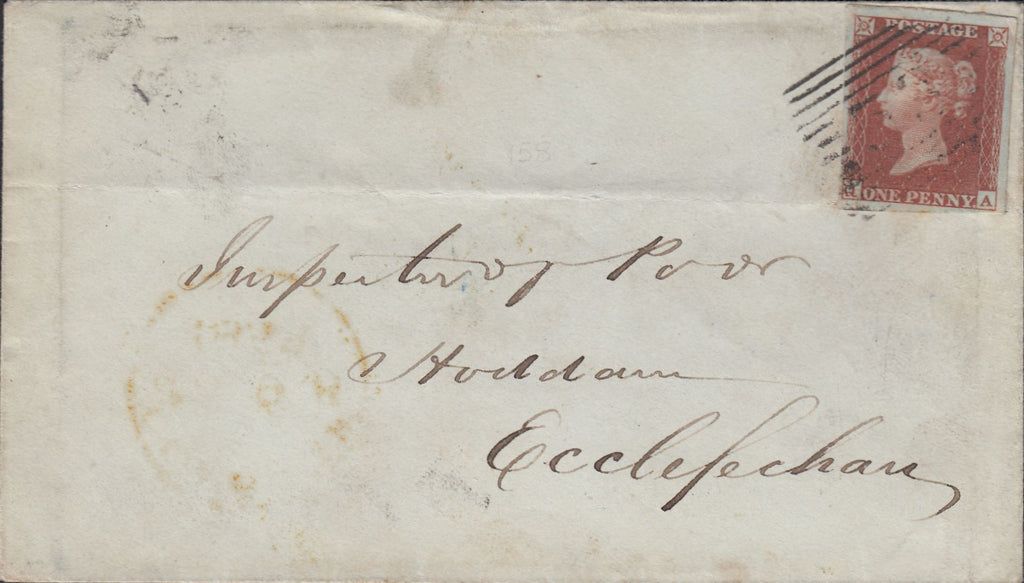 POSTAGE
ONE PENNY A
158
Inspector of Poor
Hoddam
Ecclefechan